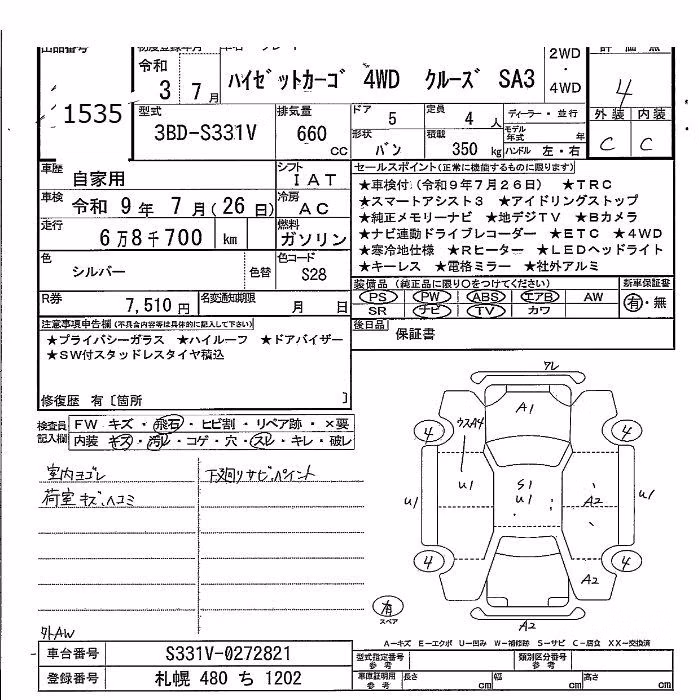 出品番号
1535
初度登録年月
令和
3 7月
ハイゼットカーゴ 4WD クルーズ SA3
2WD
・
4WD
評価点
4
外装 内装
C C
型式
3BD-S331V
排気量
660
CC
ドア
5
定員
4 人
形状
バン
積載
350 kg
ディーラー・並行
モデル年式 年
ハンドル 左・右
車歴
自家用
シフト
IAT
車検
令和 9年 7月(26日)
冷房
AC
走行
6万8千700 km
燃料
ガソリン
色
シルバー
色替
色コード
S28
R券
7,510円
名変通知期限
月 日
セールスポイント(正常に機能するものに限ります)
★車検付(令和9年7月26日) ★TRC
★スマートアシスト3 ★アイドリングストップ
★純正メモリーナビ ★地デジTV ★Bカメラ
★ナビ連動ドライブレコーダー ★ETC ★4WD
★寒冷地仕様 ★Rヒーター ★LEDヘッドライト
★キーレス ★電格ミラー ★社外アルミ
装備品(純正品に限り○をつけてください)
PS PW ABS エアB AW
SR ナビ TV カワ
新車保証書
有・無
後日品
保証書
注意事項申告欄(不具合内容等は具体的に記入して下さい)
★プライバシーガラス ★ハイルーフ ★ドアバイザー
★SW付スタッドレスタイヤ積込
修復歴 有〔箇所 〕
検査員記入欄
FW キズ・飛石・ヒビ割・リペア跡・×要
内装 キズ・汚レ・コゲ・穴・スレ・キレ・破レ
室内ヨゴレ
荷室キズ、ヘコミ
下廻りサビ、ペイント
外AW
ワレ
A1
4
4
ウスA4
U1
U1
S1
U1
A2
U1
4
4
A2
A2
有
スペア
A-キズ E-エクボ U-凹み W-補修跡 S-サビ C-腐食 XX-交換済
車台番号
S331V-0272821
登録番号
札幌 480 ち 1202
型式指定番号
参考
類別区分番号
参考
車庫証明用
参考
長さ cm
幅 cm
高さ cm